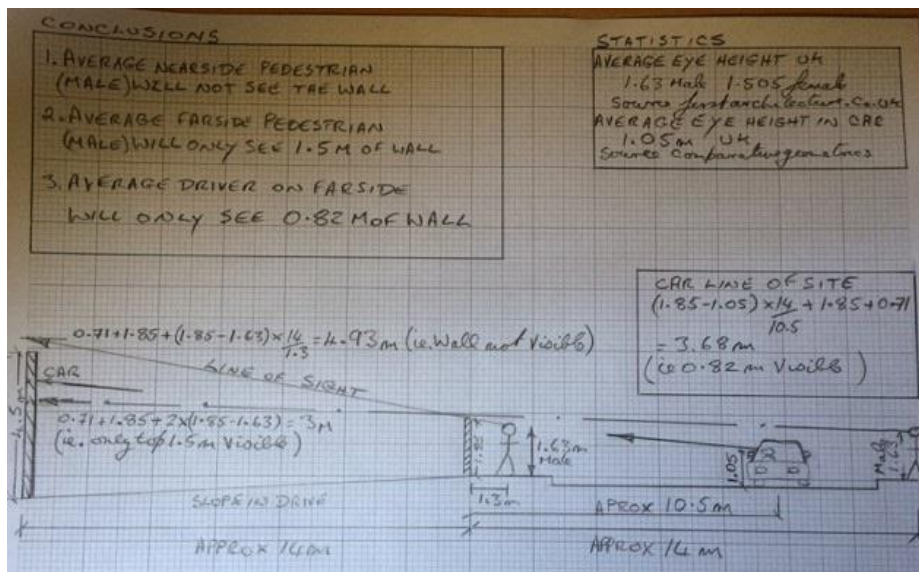 CONCLUSIONS
1. AVERAGE NEARSIDE PEDESTRIAN
(MALE) WILL NOT SEE THE WALL
2. AVERAGE FARSIDE PEDESTRIAN
(MALE) WILL ONLY SEE 1.5M OF WALL
3. AVERAGE DRIVER ON FARSIDE
WILL ONLY SEE 0.82 M OF WALL
STATISTICS
AVERAGE EYE HEIGHT UK
1.63 Male 1.505 female
Source firstarchitecture.co.uk
AVERAGE EYE HEIGHT IN CAR
1.05m UK
Source Comparativegeometrics
CAR LINE OF SITE
(1.85-1.05) × 14/10.5 + 1.85 + 0.71
= 3.68m
(ie 0.82 m Visible)
0.71 + 1.85 + (1.85 - 1.63) × 14/1.3 = 4.93m (ie. Wall not Visible)
LINE OF SIGHT
CAR
4.5m
0.71 + 1.85 + 2×(1.85 - 1.63) = 3M
(ie. only top 1.5m Visible)
1.63m
Male
1.05
Male
1.63
1.3m
SLOPE IN DRIVE
APROX 10.5m
APPROX 14m
APPROX 14m